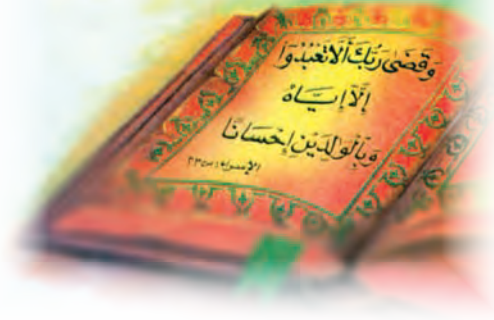 وَقَضَىٰ رَبُّكَ أَلَّا تَعْبُدُوا
إِلَّا إِيَّاهُ
وَبِالْوَالِدَيْنِ إِحْسَانًا